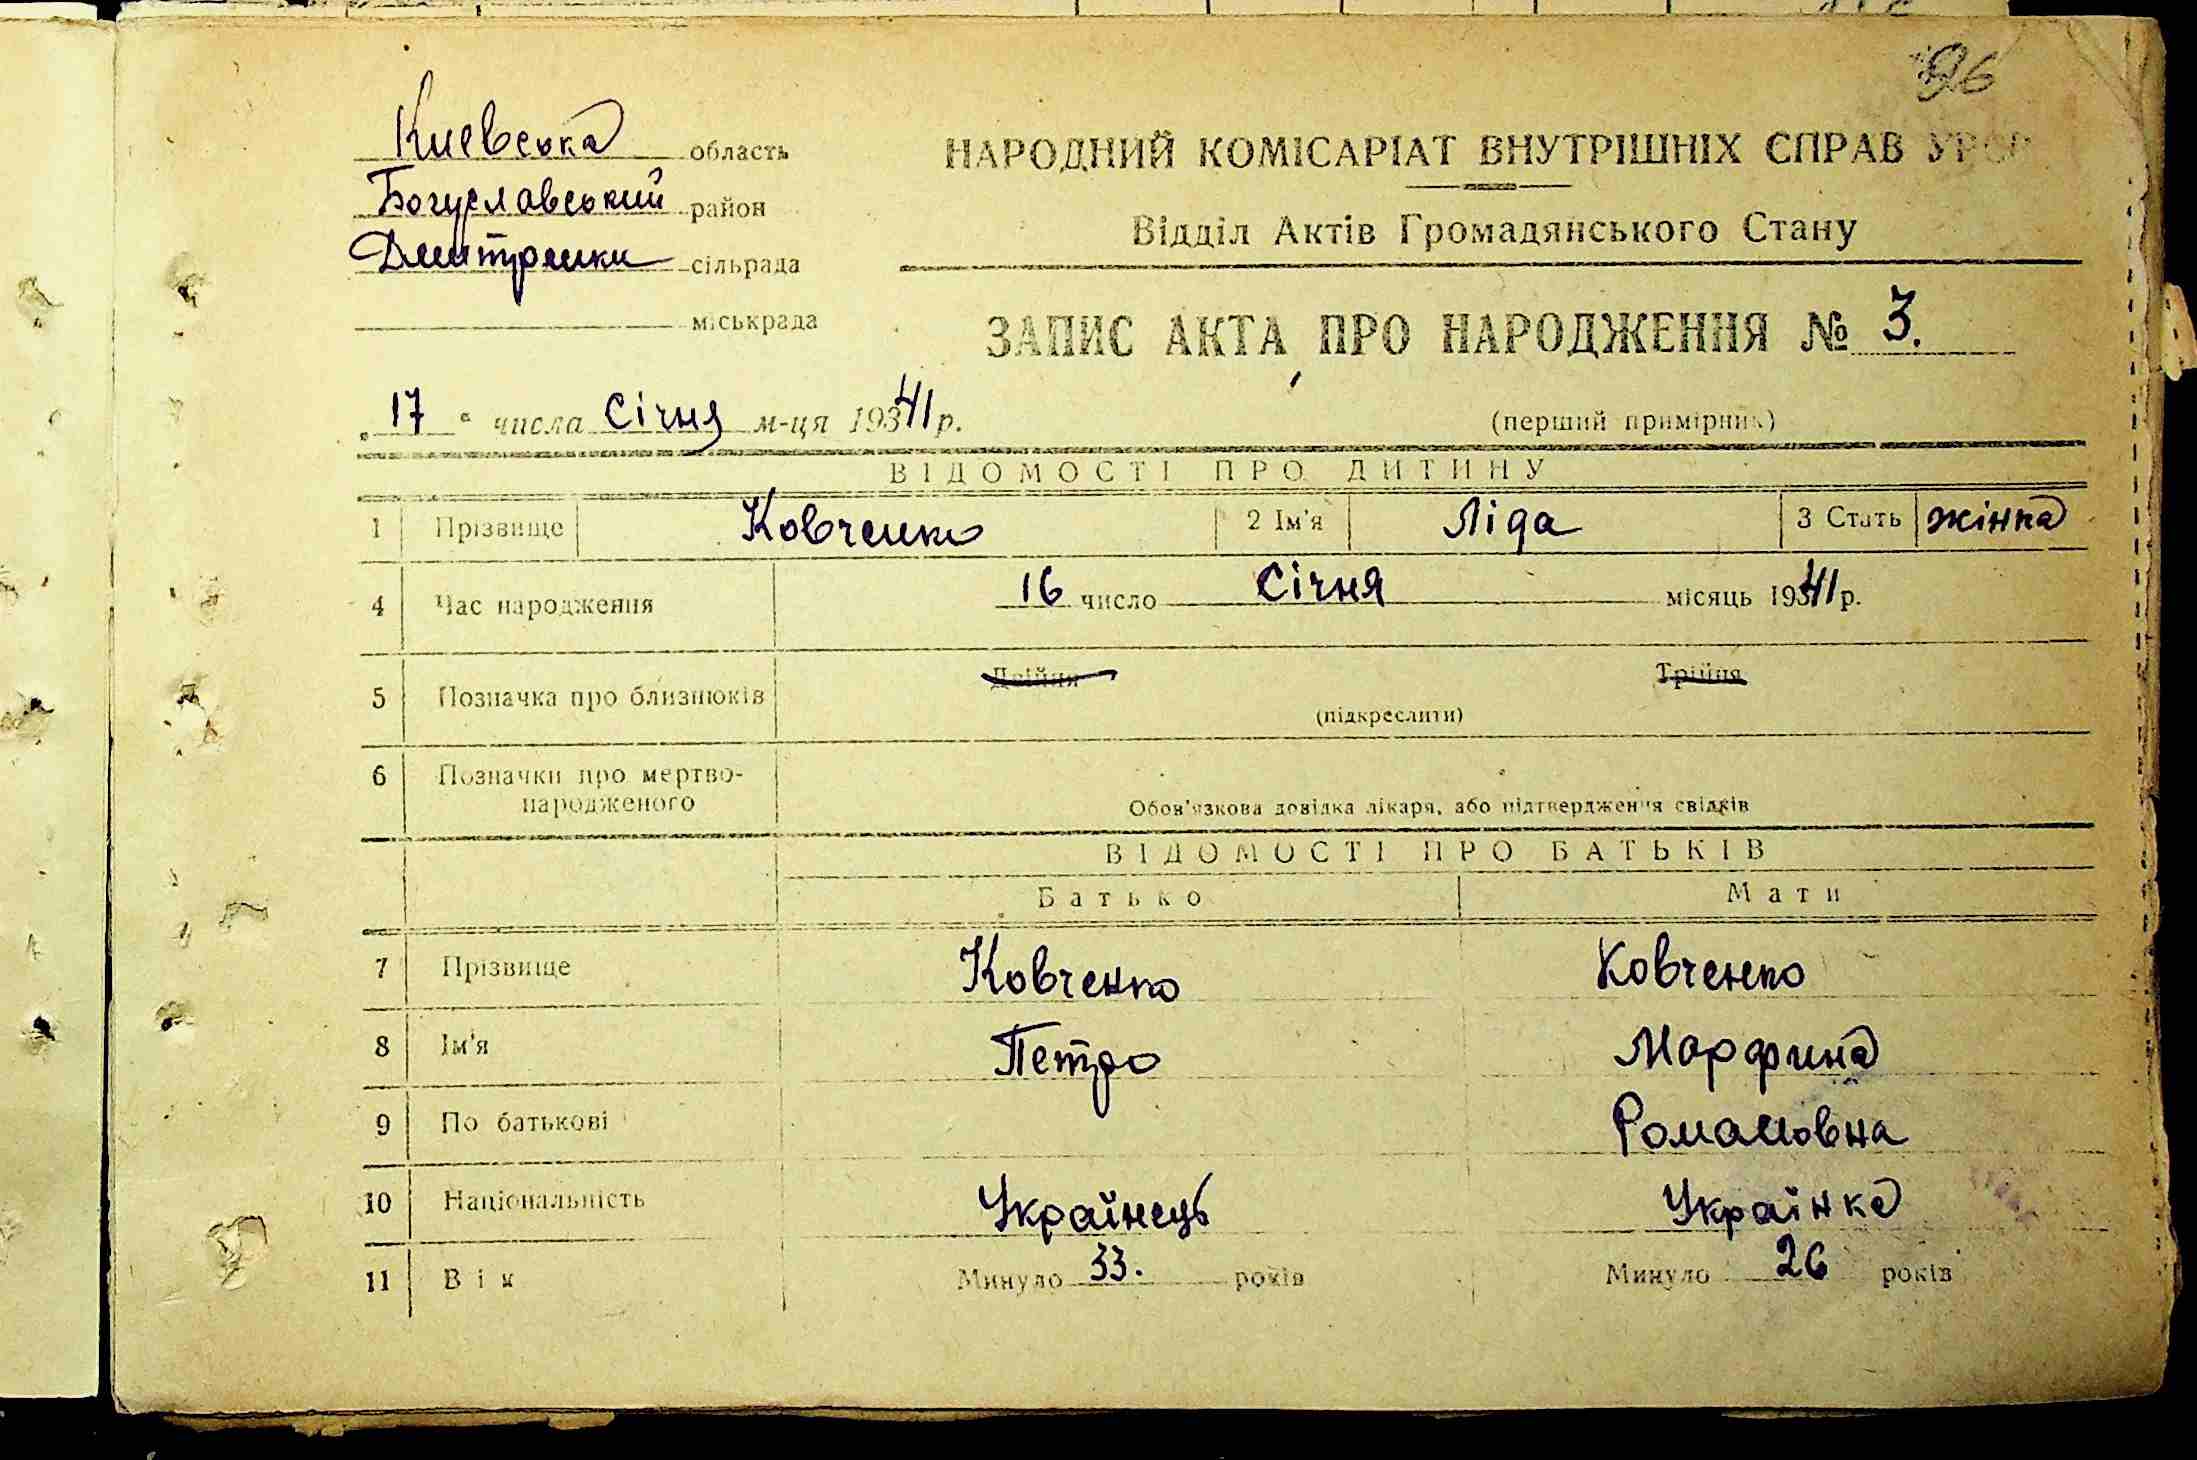 96
Киевська область
Богуславський район
Дмитренки сільрада
міськрада
НАРОДНИЙ КОМІСАРІАТ ВНУТРІШНІХ СПРАВ УРСР
Відділ Актів Громадянського Стану
ЗАПИС АКТА ПРО НАРОДЖЕННЯ № 3.
„17“ числа Січня м-ця 19341 р.
(перший примірник)
ВІДОМОСТІ ПРО ДИТИНУ
1 Прізвище Ковченко 2 Ім'я Ліда 3 Стать жінка
4 Час народження 16 число Січня місяць 19341 р.
5 Позначка про близнюків Двійня Трійня
(підкреслити)
6 Позначки про мертво-
народженого
Обов'язкова довідка лікаря, або підтвердження свідків
ВІДОМОСТІ ПРО БАТЬКІВ
Батько Мати
7 Прізвище Ковченко Ковченко
8 Ім'я Петро Марфина
9 По батькові Романовна
10 Національність Українець Українка
11 Вік Минуло 33. років Минуло 26 років